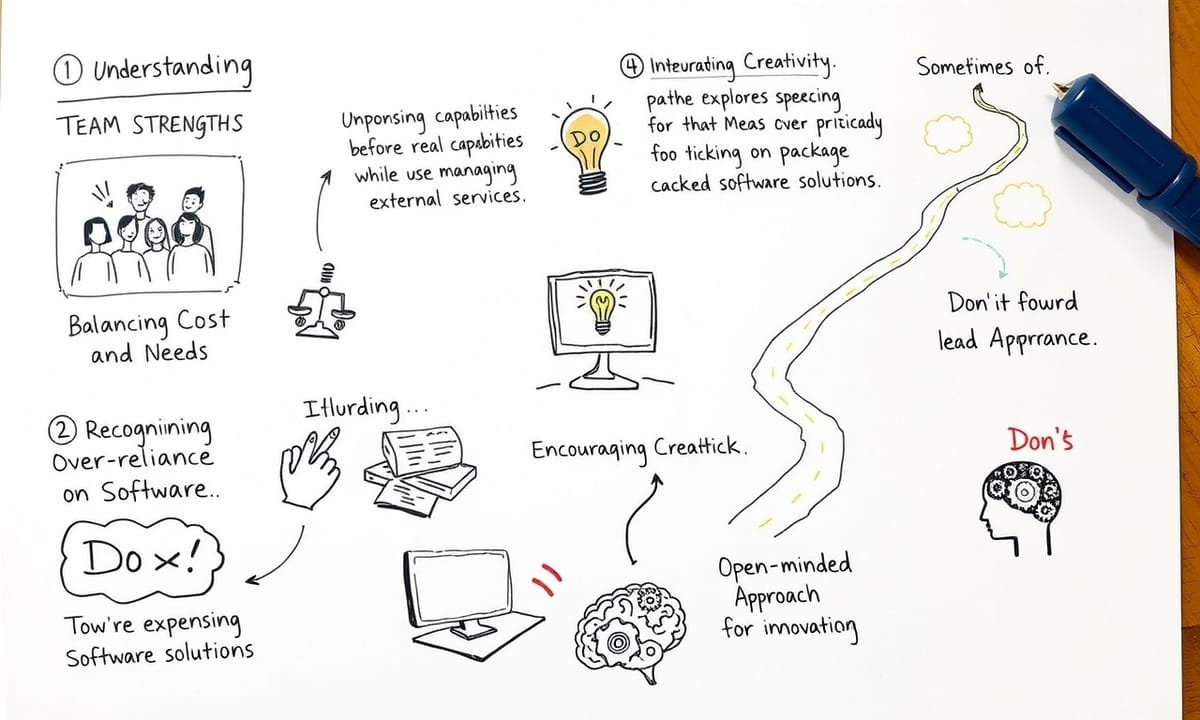 ① Understanding
TEAM STRENGTHS
Balancing Cost
and Needs
Unponsing capabilities
before real capabities
while use managing
external services.
④ Inteurating Creativity.
pathe explores specing
for that Meas over priticady
foo ticking on package
cacked software solutions.
DO
Sometimes of.
Don'it fowrd
lead Apprrance.
② Recognining
Over-reliance
on Software..
Do x!
Tow're expensing
Software solutions
Itlurding...
Encouraging Creattick.
Open-minded
Approach
for innovating
Don's